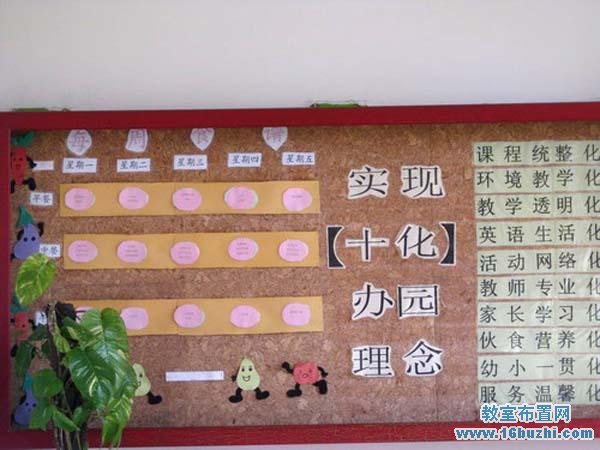 每周食谱
星期一 星期二 星期三 星期四 星期五
早餐
中餐
实现
【十化】
办园
理念
课程统整化
环境教学化
教学透明化
英语生活化
活动网络化
教师专业化
家长学习化
伙食营养化
幼小一贯化
服务温馨化
教室布置网
www.16buzhi.com